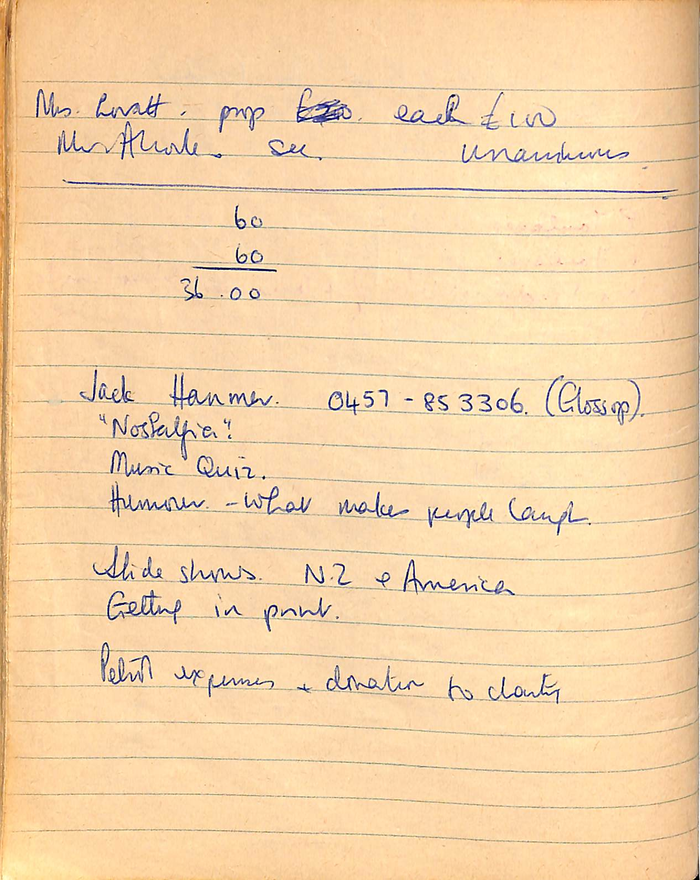 Mrs. Lovatt. prop each £100
Mrs sec. Unanimous.
60
60
36.00
Jack Hanmer. 0457-853306. (Glossop).
"Nostalgia".
Music Quiz.
Humour. - What makes people laugh.
Slide shows. N.Z & America
Getting in print.
Petrol expenses + donation to charity